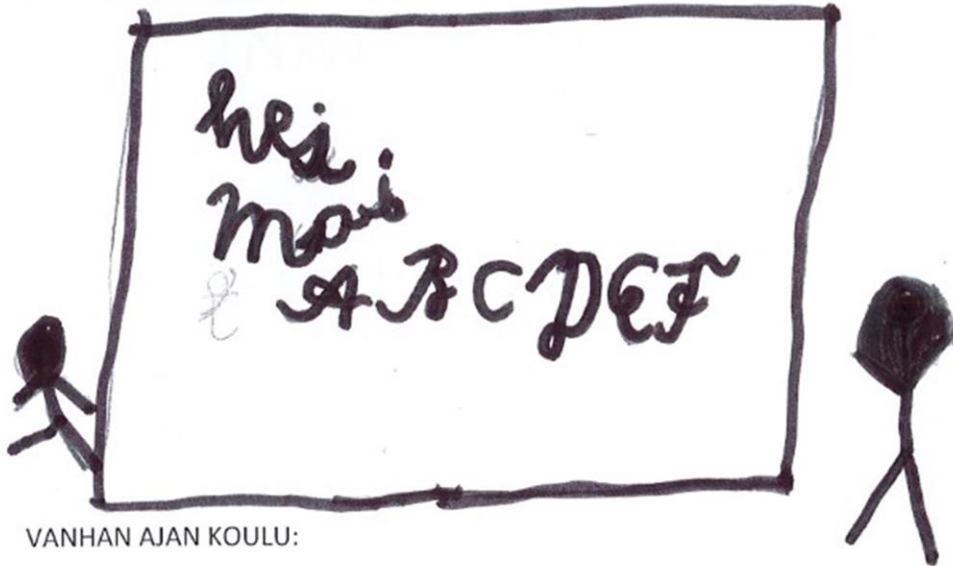 hei
moi
A B C D E F
VANHAN AJAN KOULU: